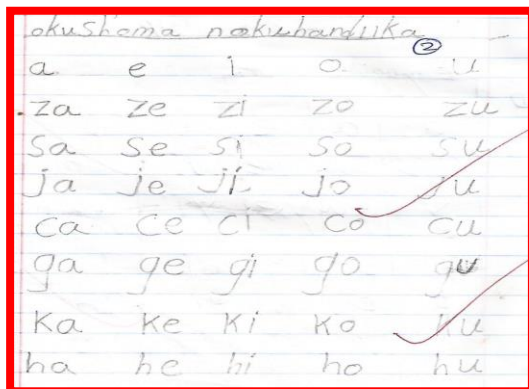 okushoma nokuhandiika
②
a e i o u
za ze zi zo zu
sa se si so su
ja je ji jo ju
ca ce ci co cu
ga ge gi go gu
Ka Ke Ki Ko Ku
ha he hi ho hu